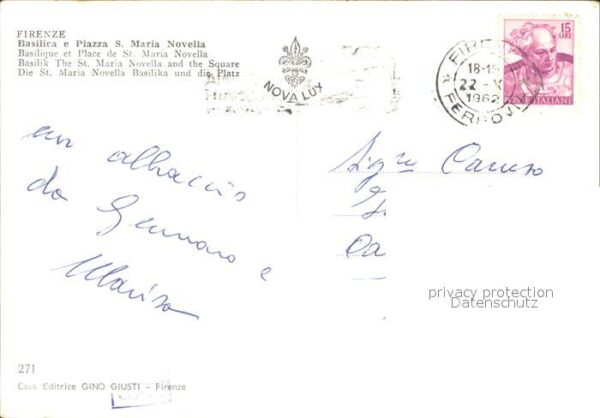 FIRENZE
Basilica e Piazza S. Maria Novella
Basilique et Place de St. Maria Novella
Basilik The St. Maria Novella and the Square
Die St. Maria Novella Basilika und die Platz
NOVA LUX
FIRENZE
18-19
22 - X
1962
FERROVIA
15
LIRE
POSTE ITALIANE
un abbraccio
da Gennaro e
Marisa
Sig.ra Caruso
privacy protection
Datenschutz
271
Casa Editrice GINO GIUSTI - Firenze